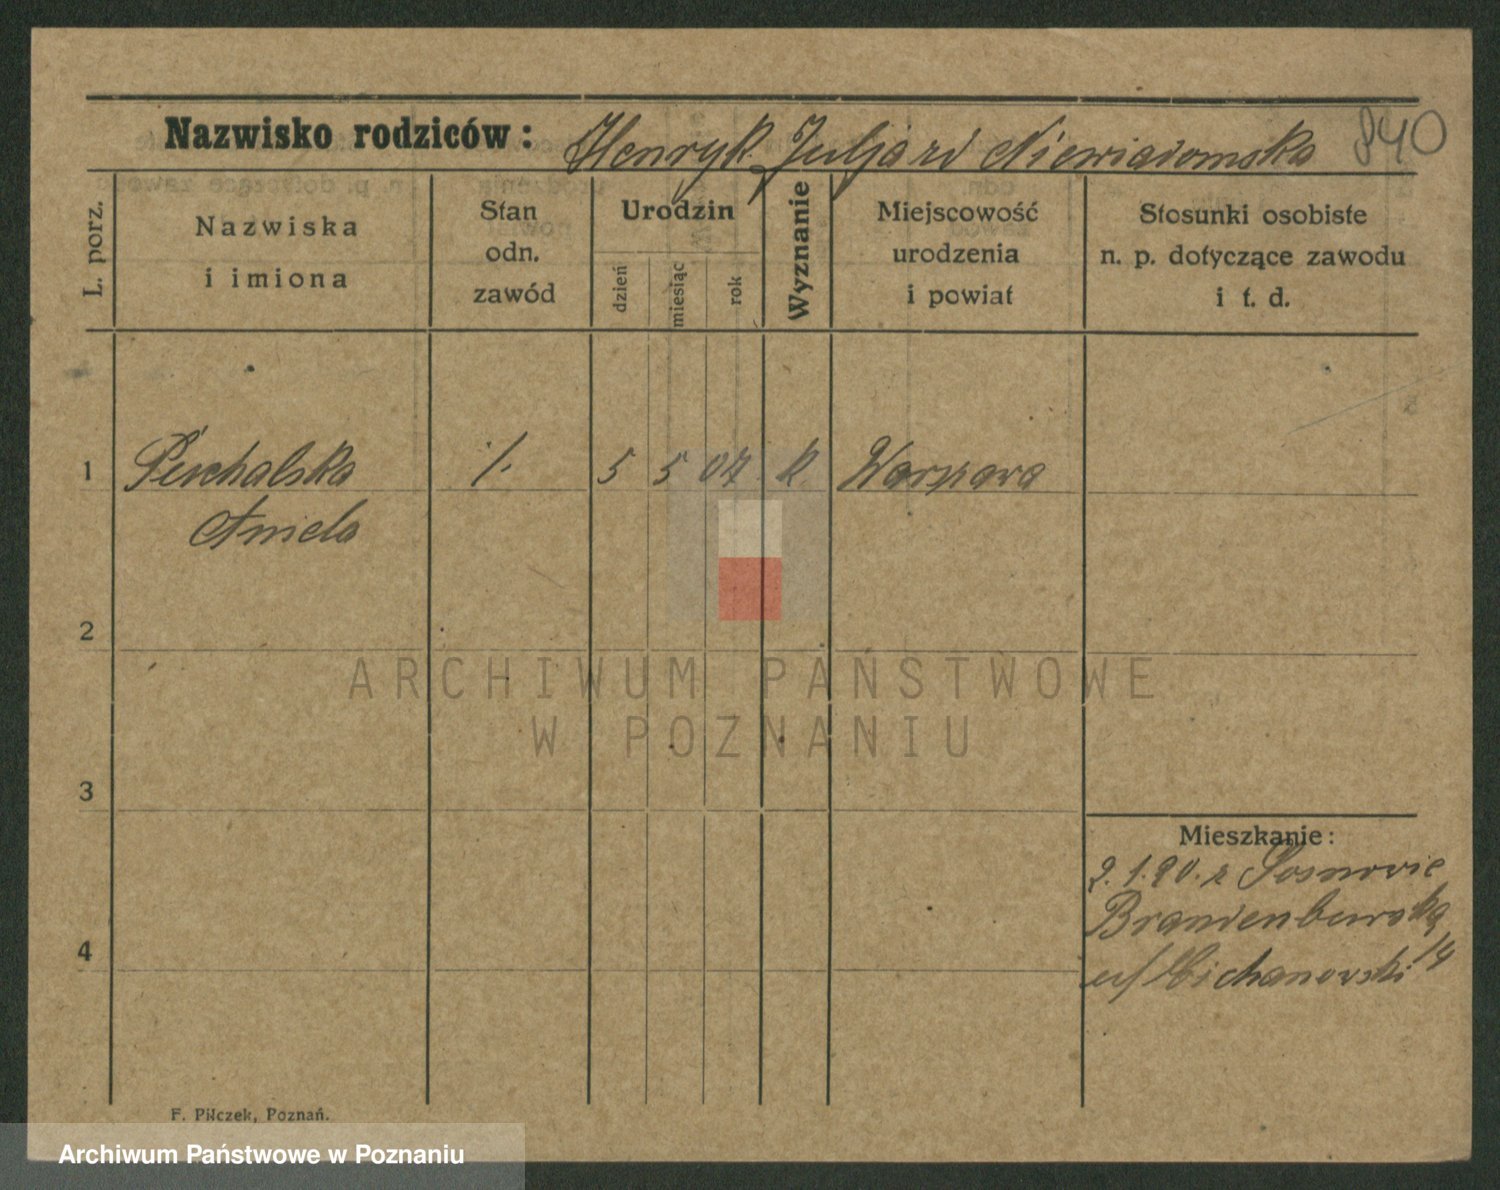 Nazwisko rodziców: Henryk Juljard Niewiadomska 840
L. porz.
Nazwiska i imiona
Stan odn. zawód
Urodzin
dzień
miesiąc
rok
Wyznanie
Miejscowość urodzenia i powiat
Stosunki osobiste n. p. dotyczące zawodu i t. d.
1 Pichalska 5 5 07 k. Warszawa
Aniela
2
ARCHIWUM PAŃSTWOWE
W POZNANIU
3
Mieszkanie:
2.1.20. z Sosnowic
Brandenburska
4
14
Cichanowski
F. Pilczek, Poznań.
Archiwum Państwowe w Poznaniu